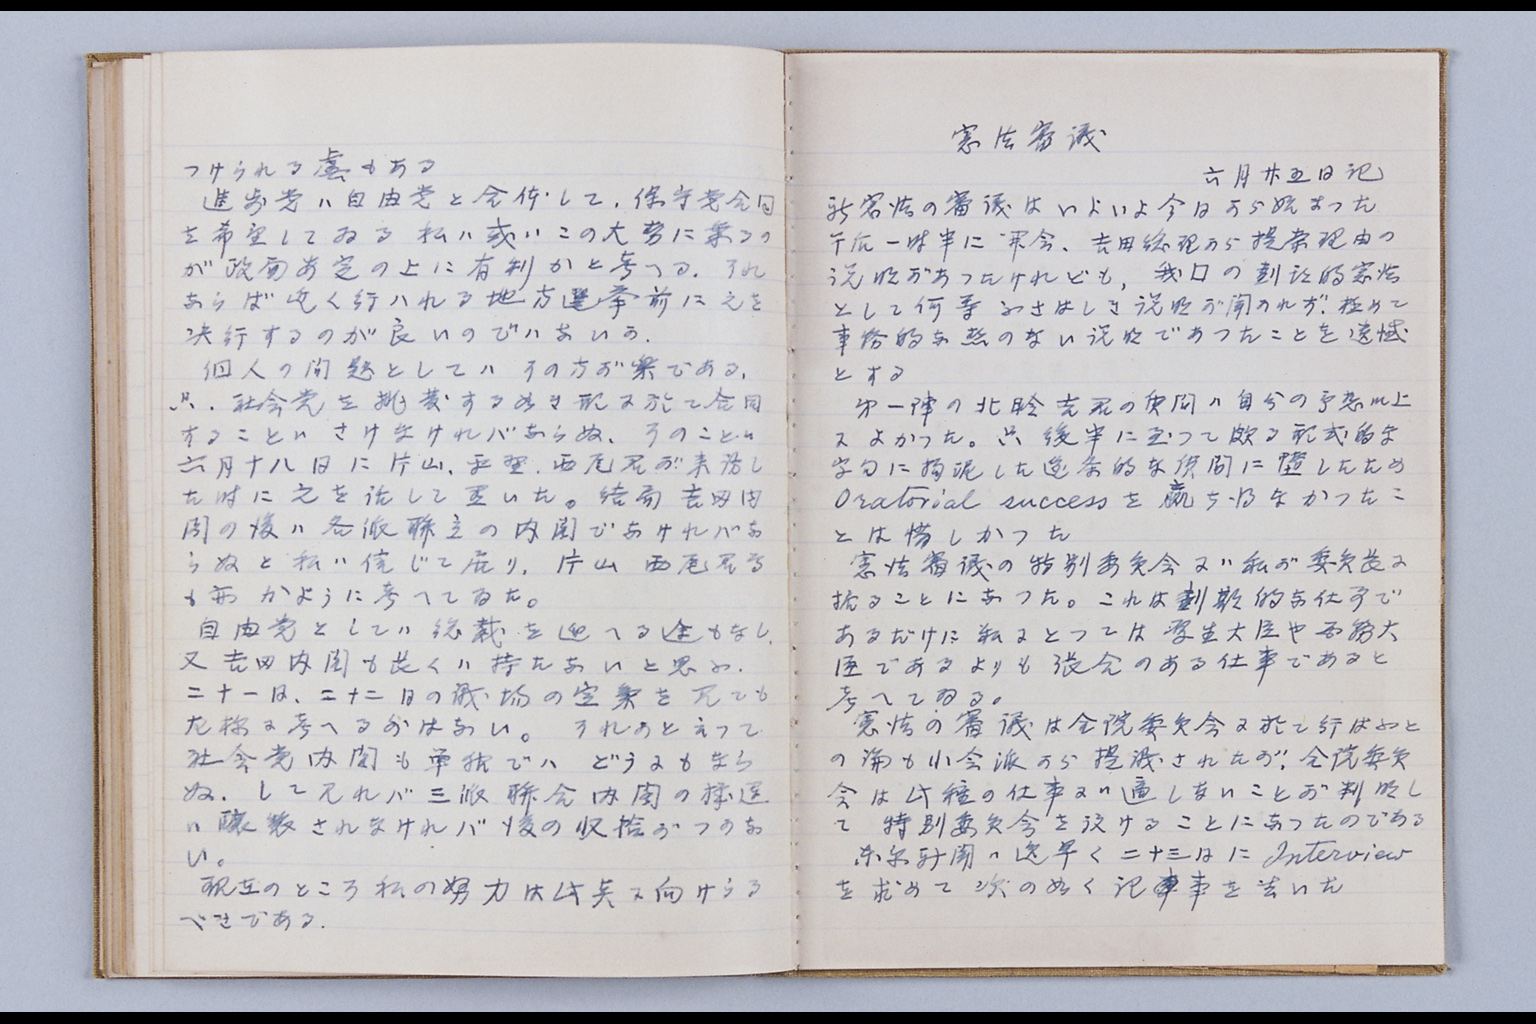 つけられる虞もある
進歩党ハ自由党と合体して、保守党合同
を希望してゐる 私ハ或ハこの大勢に乗るの
が政局安定の上に有利かと考へる、それ
ならば近く行ハれる地方選挙前に之を
決行するのが良いのでハないか、
個人の問題としてハその方が楽である、
只、社会党を挑発する如き形ニ於て合同
することハさけなけれバならぬ、そのことハ
六月十八日に片山、平野、西尾君が来訪し
た時に之を話して置いた。結局吉田内
閣の後ハ各派聯立の内閣でなけれバな
らぬと私ハ信じて居り、片山 西尾君等
も亦 かように考へてゐた。
自由党としてハ総裁を迎へる途もなし、
又吉田内閣も長くハ持たないと思ふ、
二十一日、二十二日の議場の空気を見ても
左様ニ考へるがはない。それかと云つて
社会党内閣も単独でハ どうニもなら
ぬ、して見れバ三派聯合内閣の構造
ハ醸成されなけれバ後の収拾がつかな
い。
現在のところ私の努力は此点ニ向けらる
べきである、
憲法審議
六月廿五日記
新憲法の審議はいよいよ今日から始まつた
午后一時半に開会、吉田総理から提案理由の
説明があつたけれども、我国の劃期的憲法
として何等ふさはしき説明が聞かれず、極めて
事務的な熱のない説明であつたことを遺憾
とする
第一陣の北昤吉君の質問ハ自分の予想以上
ニよかつた。只 後半に至つて頗る形式的な
字句に拘泥した逐条的な質問に堕したため
Oratorial successを贏ち得なかつたこ
とは惜しかつた
憲法審議の特別委員会ニハ私が委員長ニ
据ることになつた。これは劃期的な仕事で
あるだけに私ニとつては厚生大臣や商務大
臣であるよりも張合のある仕事であると
考へてゐる。
憲法の審議は全院委員会ニ於て行はふと
の論も小会派から提議されたが、全院委員
会は此種の仕事ニハ適しないことが判明し
て 特別委員会を設けることになつたのである
東京新聞ハ逸早く二十三日にInterview
を求めて次の如く記事を書いた